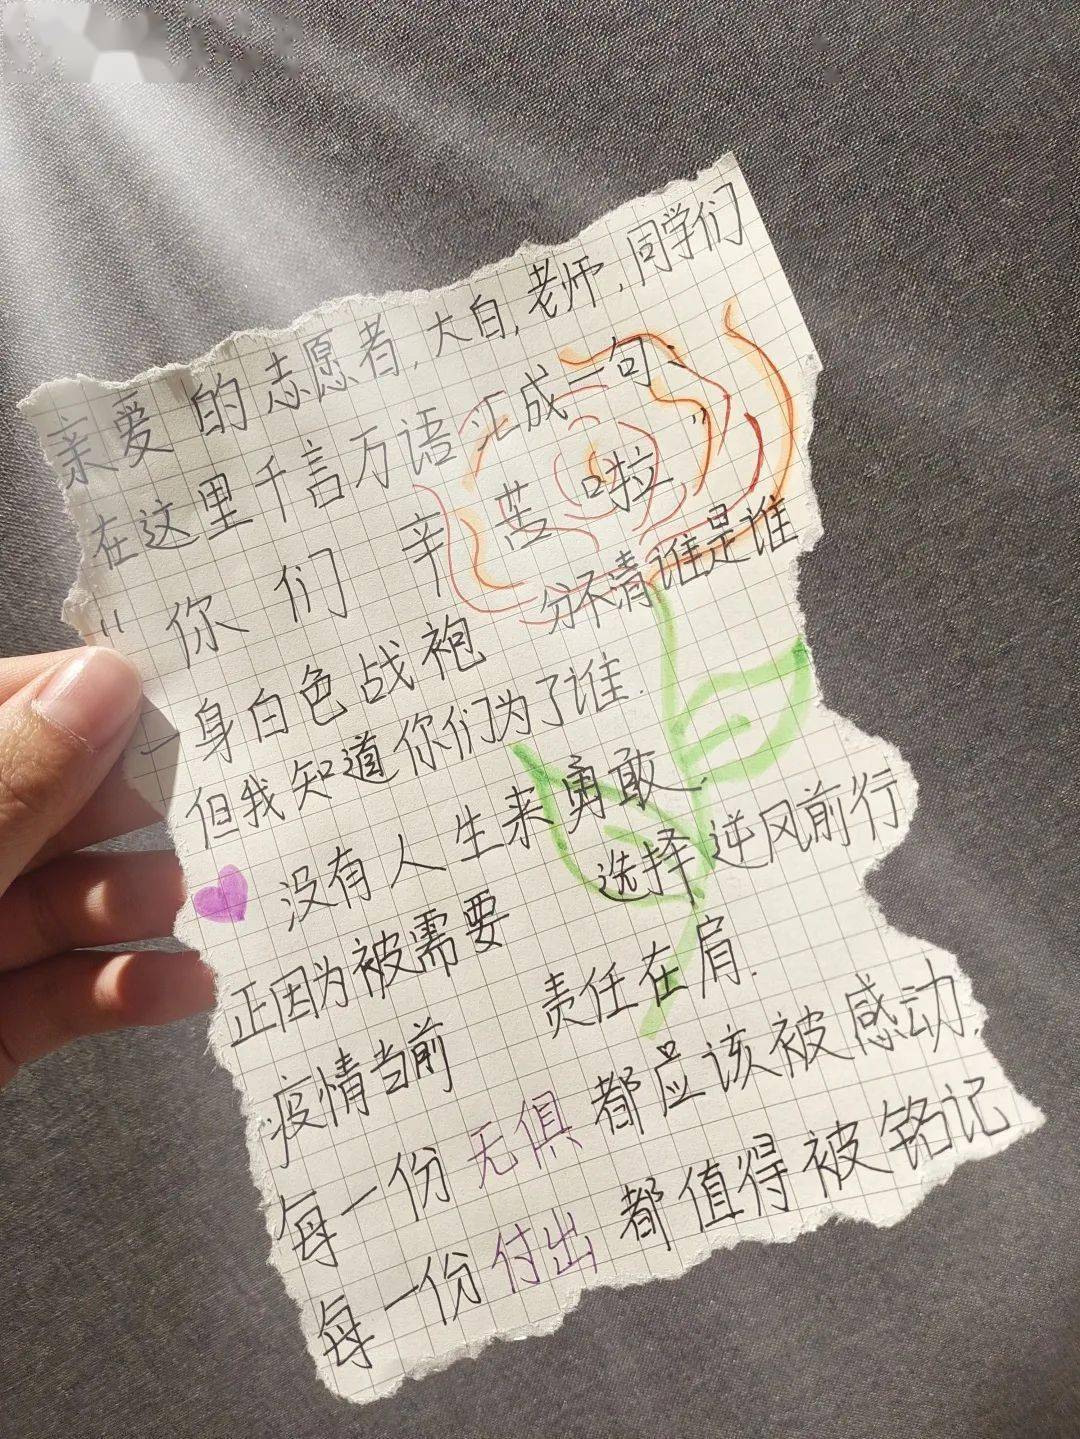 亲爱的志愿者,大自,老师,同学们
在这里千言万语汇成一句:
“你们辛苦啦”
一身白色战袍 分不清谁是谁
但我知道你们为了谁.
没有人生来勇敢.
正因为被需要 选择逆风前行
疫情当前 责任在肩.
每一份无惧都应该被感动.
每一份付出都值得被铭记